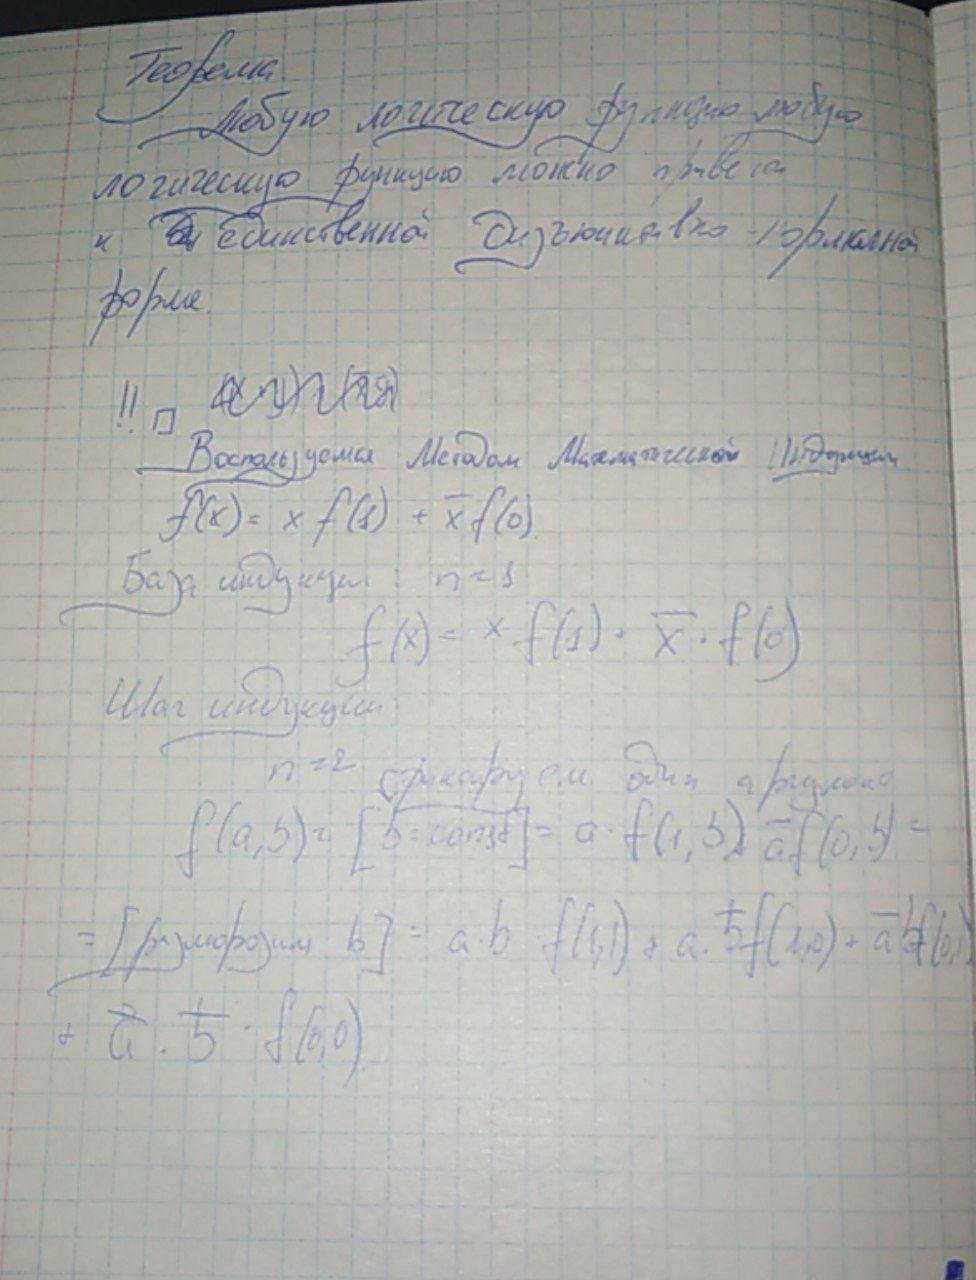 Теорема.
Любую логическую функцию любую
логическую функцию можно привести
к единственной дизъюнктивно-нормальной
форме.
!!
Воспользуемся Методом Математической Индукции
f(x) = x f(1) + x̅ f(0)
База индукции: n = 1
f(x) = x f(1) + x̅ · f(0)
Шаг индукции:
n = 2 фиксируем один аргумент
f(a,b) = [b = const] = a · f(1,b) + a̅ f(0,b) =
= [разморозим b] = a·b · f(1,1) + a·b̅ f(1,0) + a̅ b f(0,1)
+ a̅ · b̅ · f(0,0)